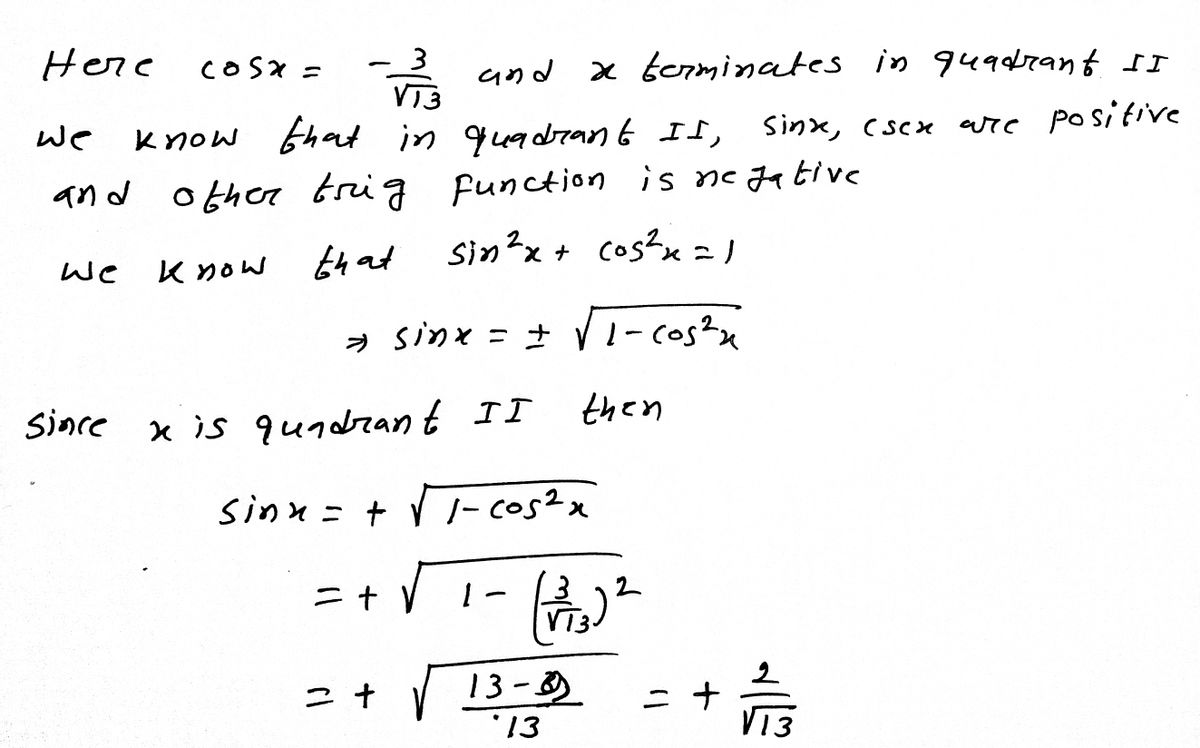 Here cosx = - 3/√13 and x terminates in quadrant II
we know that in quadrant II, sinx, cscx are positive
and other trig function is negative
we know that sin²x + cos²x = 1
⇒ sinx = ± √(1-cos²x)
since x is quadrant II then
sinx = + √(1-cos²x)
= + √(1 - (3/√13)²)
= + √((13-9)/13) = + 2/√13